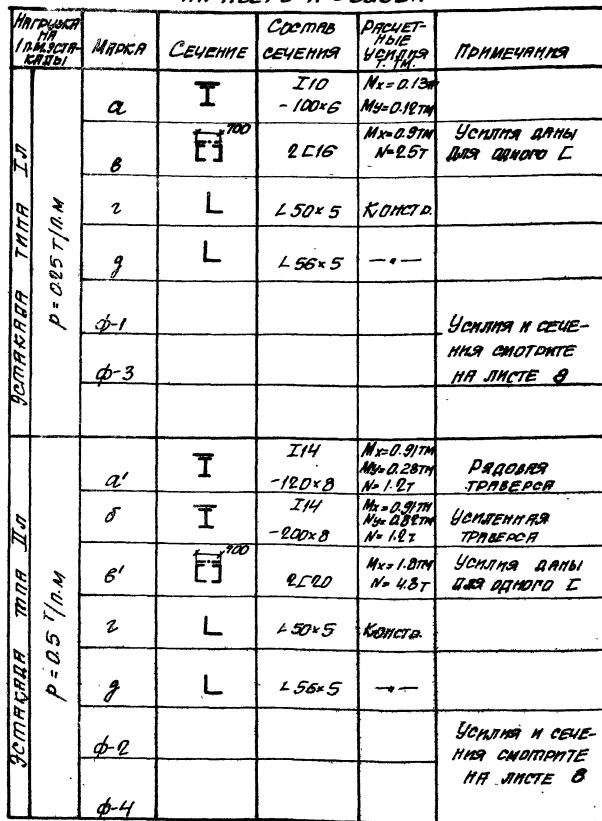 НАГРУЗКА НА 1 П.М. ЭСТАКАДЫ
МАРКА
СЕЧЕНИЕ
СОСТАВ СЕЧЕНИЯ
РАСЧЕТНЫЕ УСИЛИЯ Т. ТМ.
ПРИМЕЧАНИЯ
ЭСТАКАДА ТИПА Iл
p = 0.25 т/п.м
а
I10
-100×6
Mx=0.13т
My=0.12тм
в
700
2 С16
Mx=0.9тм
N=25т
УСИЛИЯ ДАНЫ
ДЛЯ ОДНОГО С
г
L 50×5
КОНСТР.
д
L 56×5
—"—
ф-1
ф-3
УСИЛИЯ И СЕЧЕ-
НИЯ СМОТРИТЕ
НА ЛИСТЕ 8
ЭСТАКАДА ТИПА IIл
p = 0.5 т/п.м
а'
I14
-120×8
Mx=0.91тм
My=0.28тм
N=1.2т
РЯДОВАЯ
ТРАВЕРСА
б
I14
-200×8
Mx=0.91тм
My=0.82тм
N=1.2т
УСИЛЕННАЯ
ТРАВЕРСА
в'
700
2С20
Mx=1.8тм
N=4.8т
УСИЛИЯ ДАНЫ
ДЛЯ ОДНОГО С
г
L 50×5
КОНСТР.
д
L 56×5
—"—
ф-2
ф-4
УСИЛИЯ И СЕЧЕ-
НИЯ СМОТРИТЕ
НА ЛИСТЕ 8